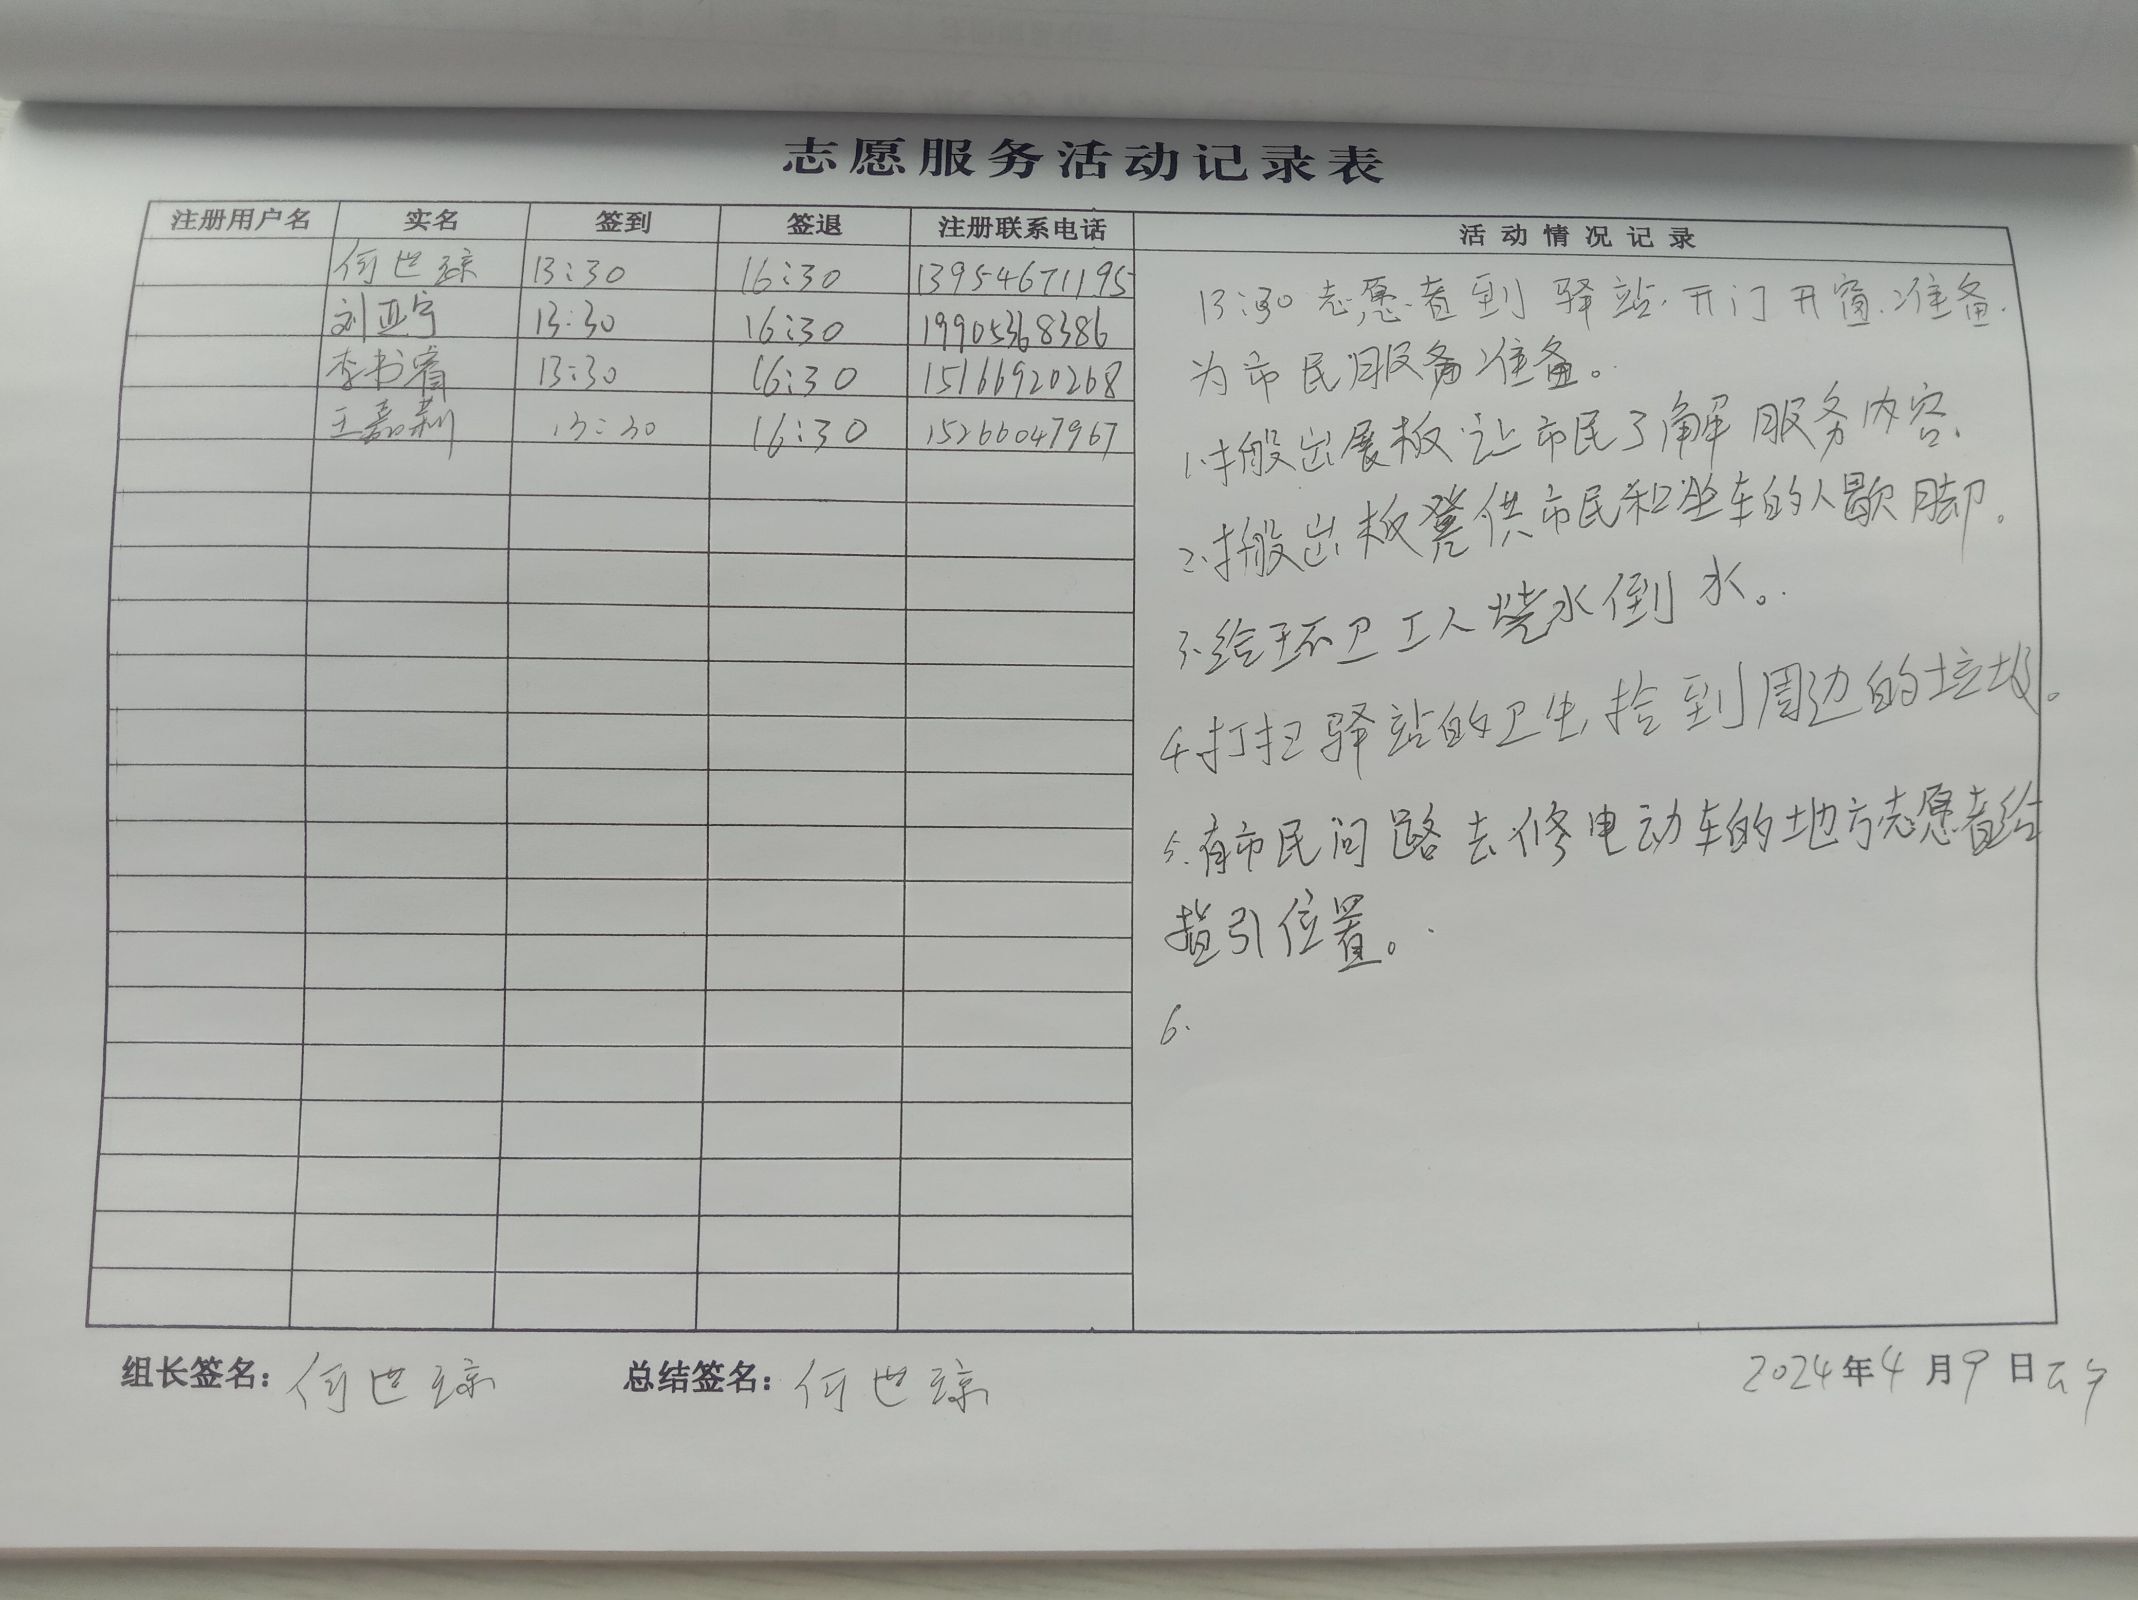 志愿服务活动记录表
注册用户名 实名 签到 签退 注册联系电话 活动情况记录
何世琼 13:30 16:30 13954671195
刘亚宁 13:30 16:30 19905368386
李书睿 13:30 16:30 15166920268
王嘉莉 13:30 16:30 15266047967
13:30志愿者到驿站.开门开窗.准备.
为市民服务准备。
1.搬出展板让市民了解服务内容.
2.搬出板凳供市民和坐车的人歇脚。
3.给环卫工人烧水倒水。
4.打扫驿站的卫生捡到周边的垃圾。
5.有市民问路去修电动车的地方志愿者给
指引位置。
6.
组长签名：何世琼 总结签名：何世琼 2024年4月9日下午